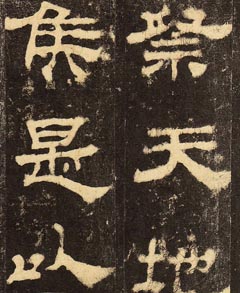 祭天地
侯是以